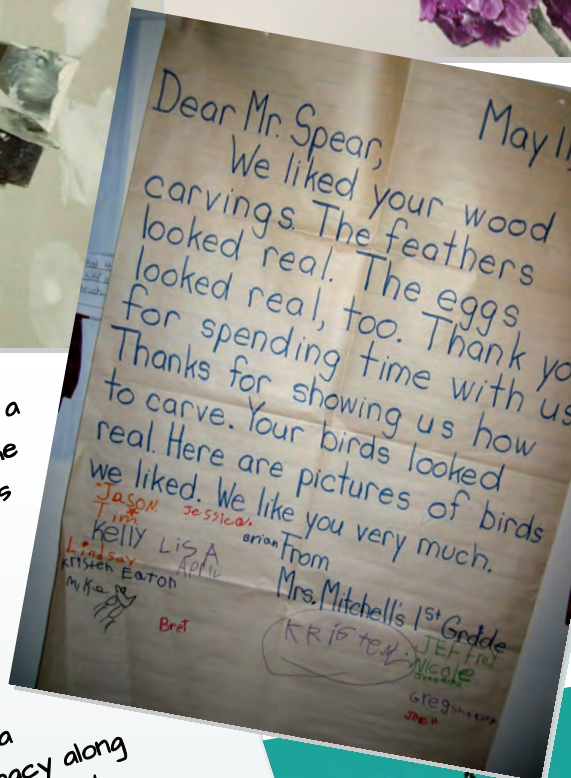 Dear Mr. Spear,
May 11,
We liked your wood
carvings. The feathers
looked real. The eggs
looked real, too. Thank yo
for spending time with us
Thanks for showing us how
to carve. Your birds looked
real. Here are pictures of birds
we liked. We like you very much.
From
Mrs. Mitchell's 1st Grade
Jason
Tim
Jessica
Kelly
LiSA
Brian
Lindsay
APRIL
Kristen Eaton
Mike
Bret
KRisten
JEFFrey
Nicole
Greg
Josh
a
a
acy along